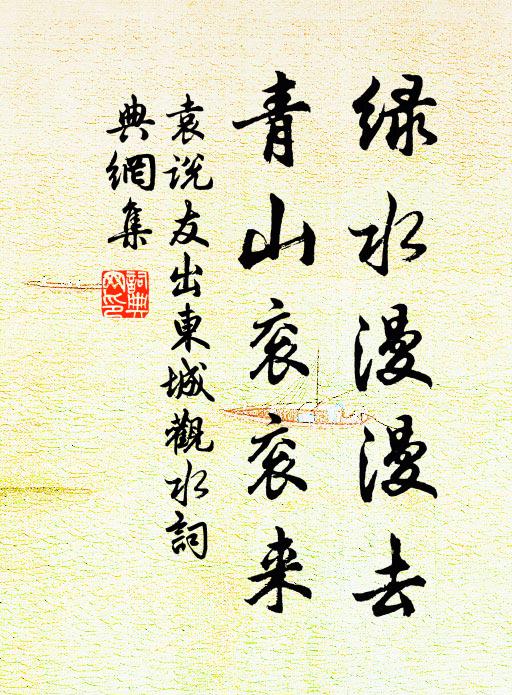 绿水漫漫去
青山衮衮来
袁说友出東城觀水詞
典網集
詞典
网印